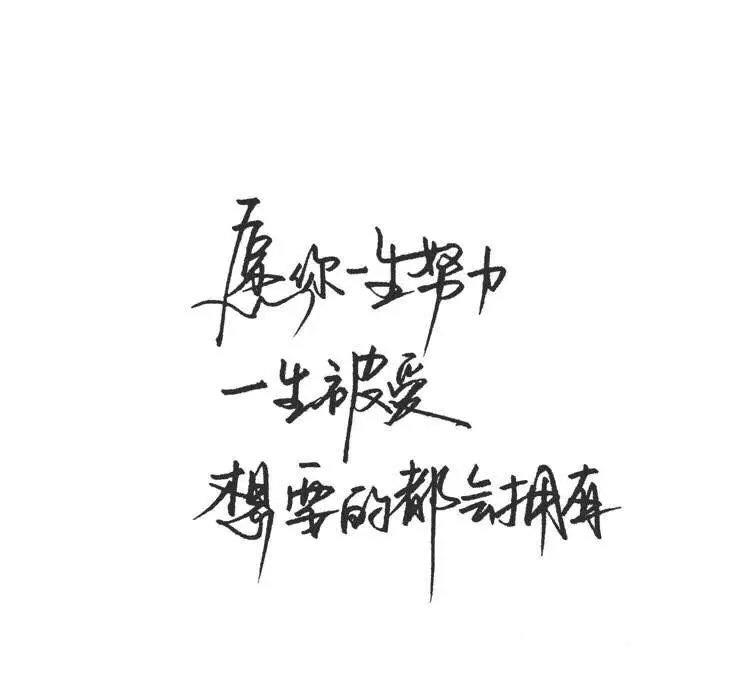 愿你一生努力
一生被爱
想要的都会拥有